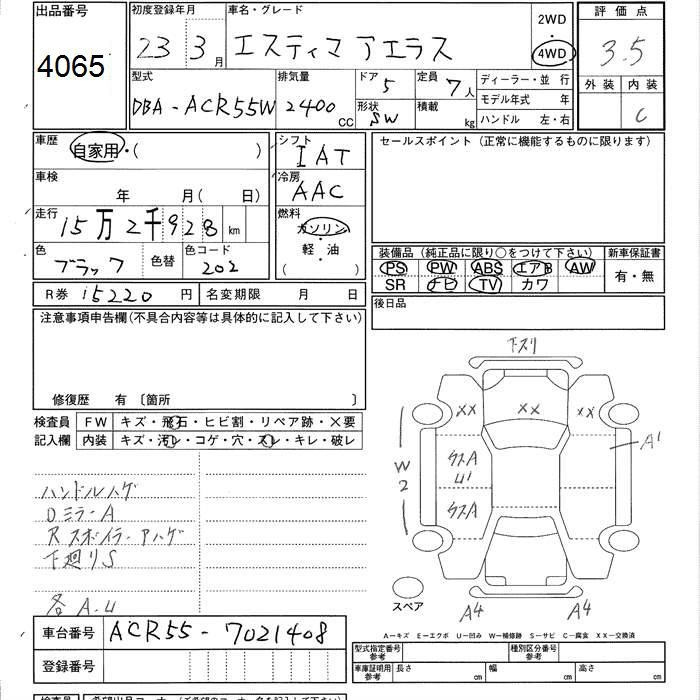 出品番号
4065
初度登録年月 車名・グレード
23 3月 エスティマ アエラス
2WD
・
4WD
評価点
3.5
外装 内装
C
型式 排気量 ドア 定員 ディーラー・並行
DBA-ACR55W 2400 CC 5 7人
形状 積載 モデル年式 年
SW kg ハンドル 左・右
車歴
自家用・( )
シフト
IAT
車検
年 月( 日)
冷房
AAC
走行
15万2千928 km
燃料
ガソリン
・
軽油
( )
色 色替 色コード
ブラック 202
R券 15220 円 名変期限 月 日
セールスポイント(正常に機能するものに限ります)
装備品(純正品に限り○をつけて下さい) 新車保証書
PS PW ABS エアB AW 有・無
SR ナビ TV カワ
後日品
注意事項申告欄(不具合内容等は具体的に記入して下さい)
修復歴 有 〔箇所 〕
検査員 FW キズ・飛石・ヒビ割・リペア跡・×要
記入欄 内装 キズ・汚レ・コゲ・穴・スレ・キレ・破レ
ハンドルハゲ
Dミラー A
Rスポイラー Aハゲ
下廻りS
各 A.U
下スリ
XX XX XX
A1
W2
ウスA
U1
ウスA
スペア
A4 A4
A―キズ E―エクボ U―凹み W―補修跡 S―サビ C―腐食 XX―交換済
車台番号 ACR55-7021408
登録番号
型式指定番号 参考 種別区分番号 参考
車庫証明用 参考 長さ cm 幅 cm 高さ cm